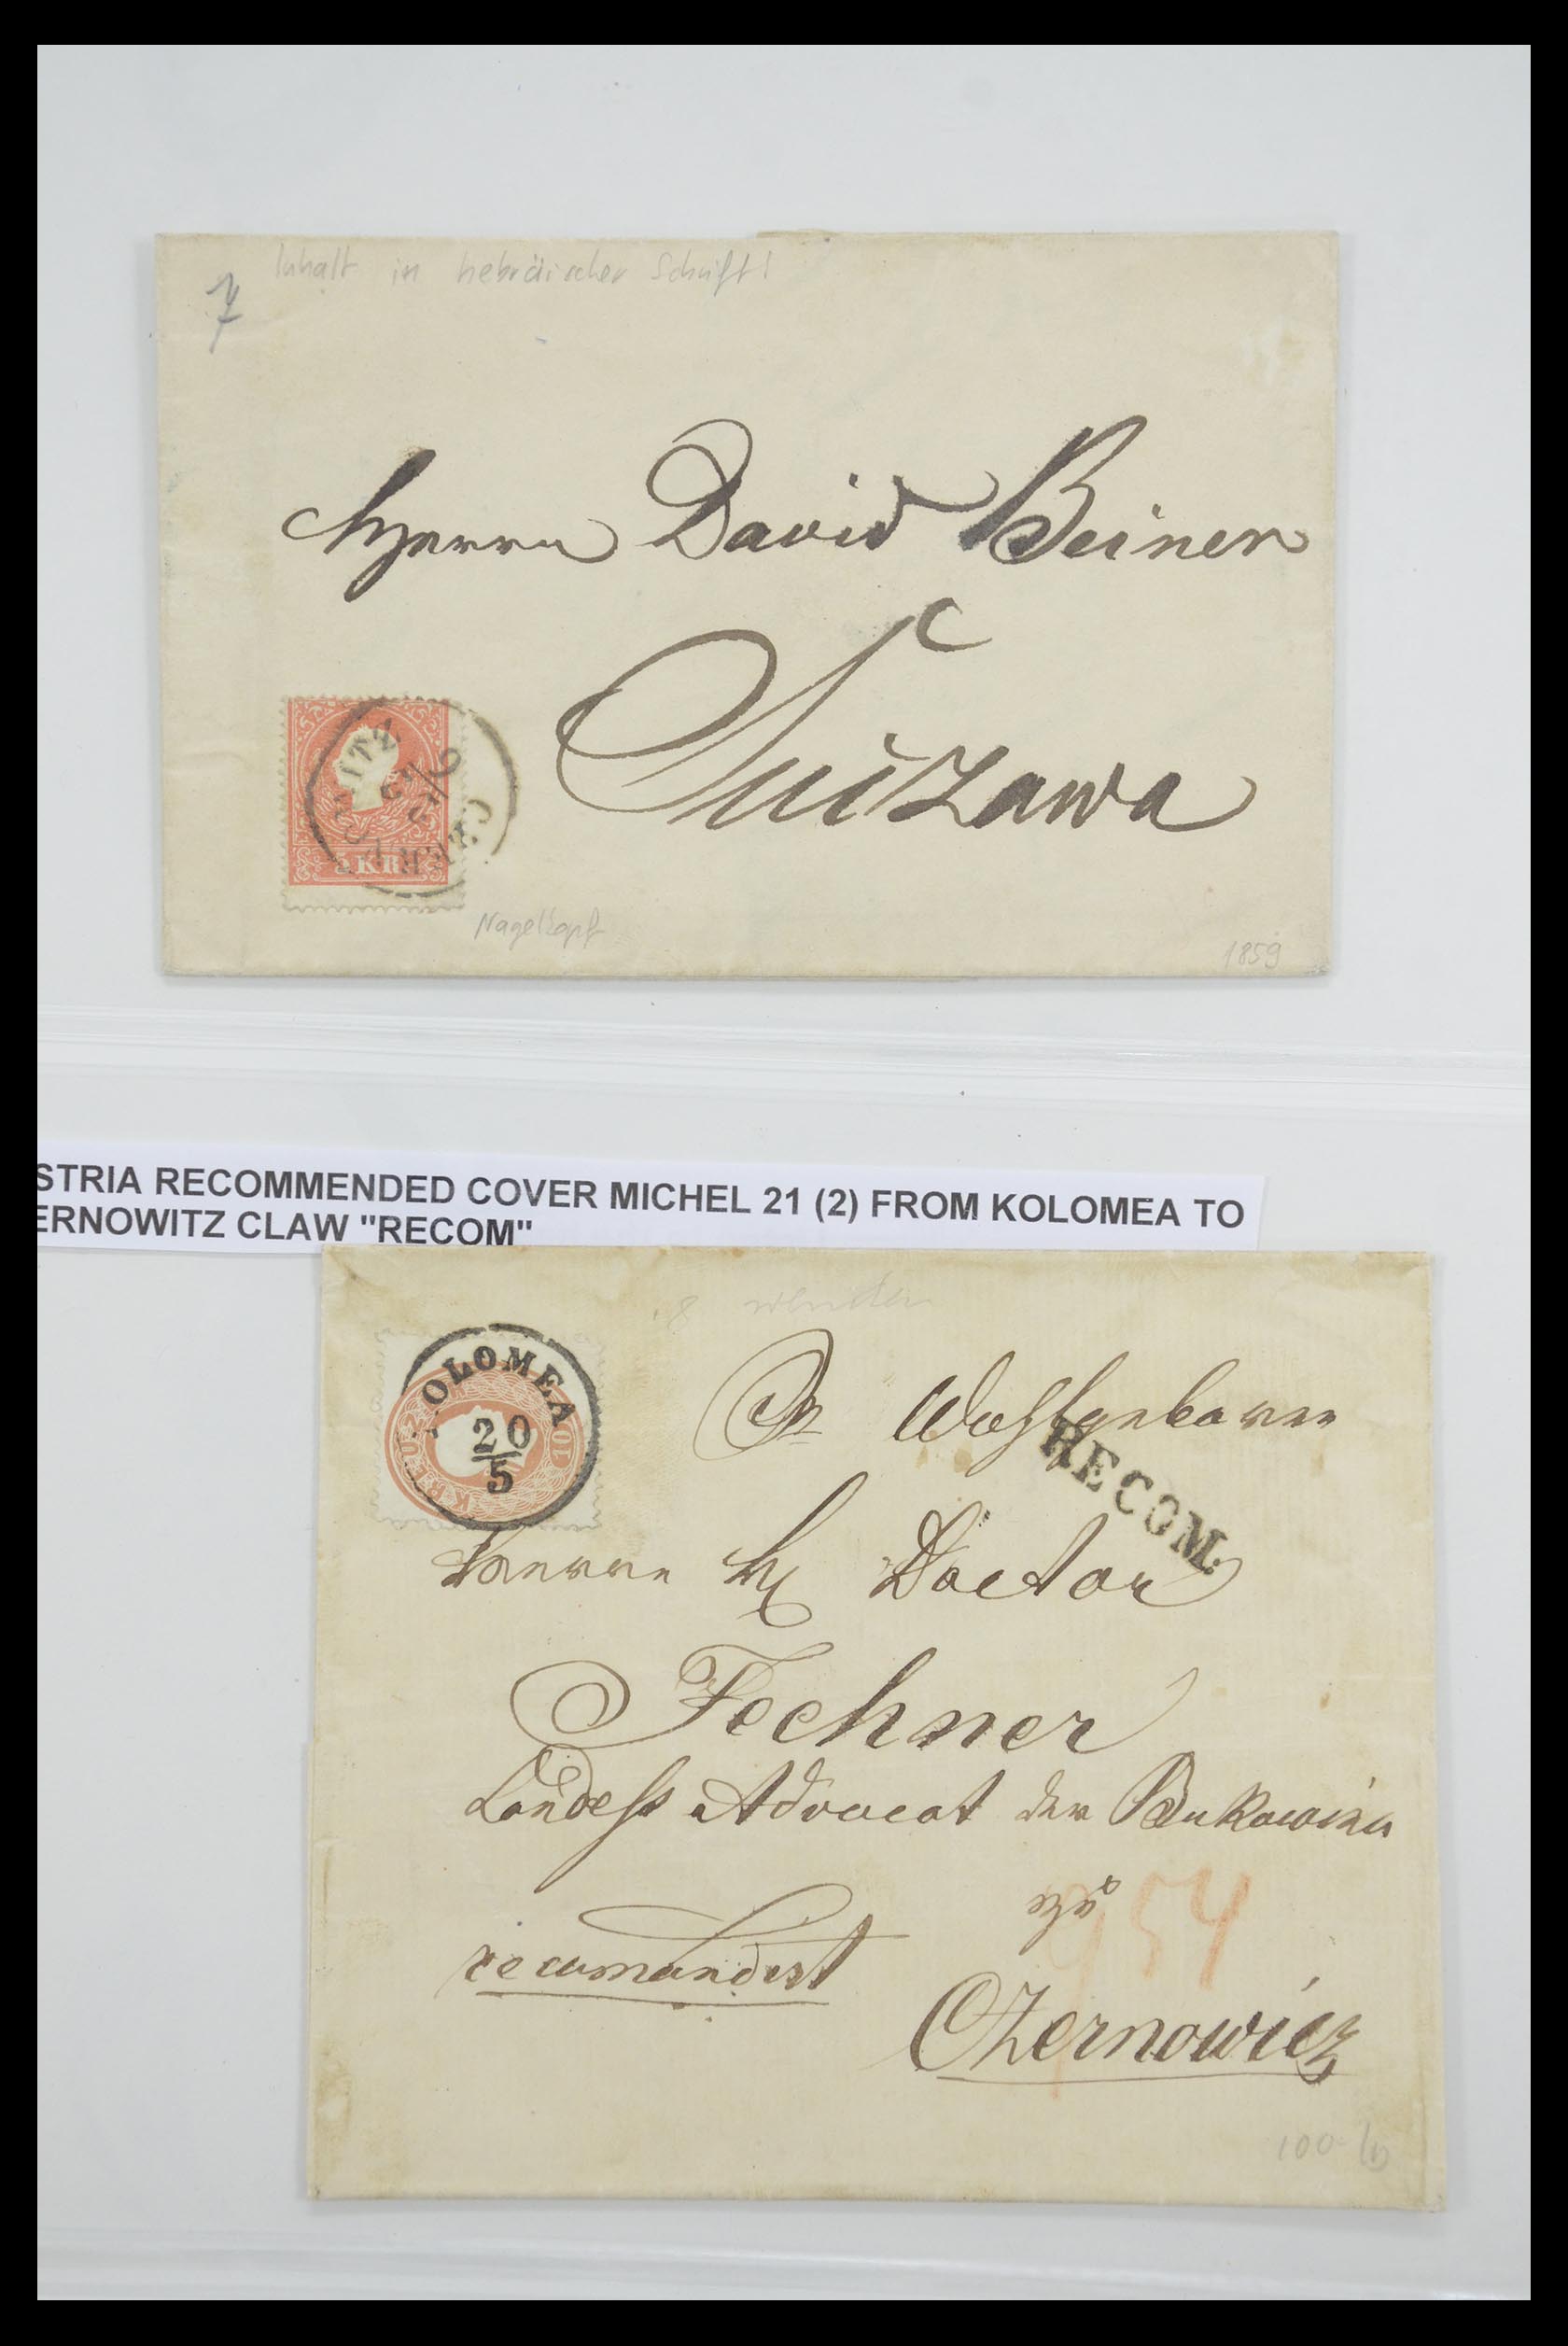 Inhalt in hebräischer Schrift!
7
Herrn David Beiner
Suczawa
CZERNOWITZ
5 KR
Nagelkopf
1859
STRIA RECOMMENDED COVER MICHEL 21 (2) FROM KOLOMEA TO
ERNOWITZ CLAW "RECOM"
OLOMEA
20
5
Wohlgebornen
RECOM.
Herrn H Doctor
Fechner
Landess Advocat der Bukowina
zu
954
recomandert
Czernowicz
100